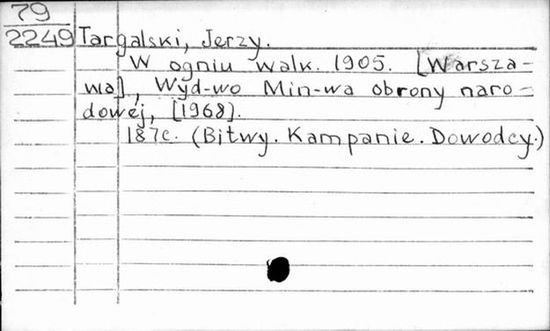 79
2249 Targalski, Jerzy.
W ogniu walk. 1905. [Warsza-
wa], Wyd-wo Min-wa obrony naro-
dowej, [1968].
187c. (Bitwy. Kampanie. Dowodcy.)